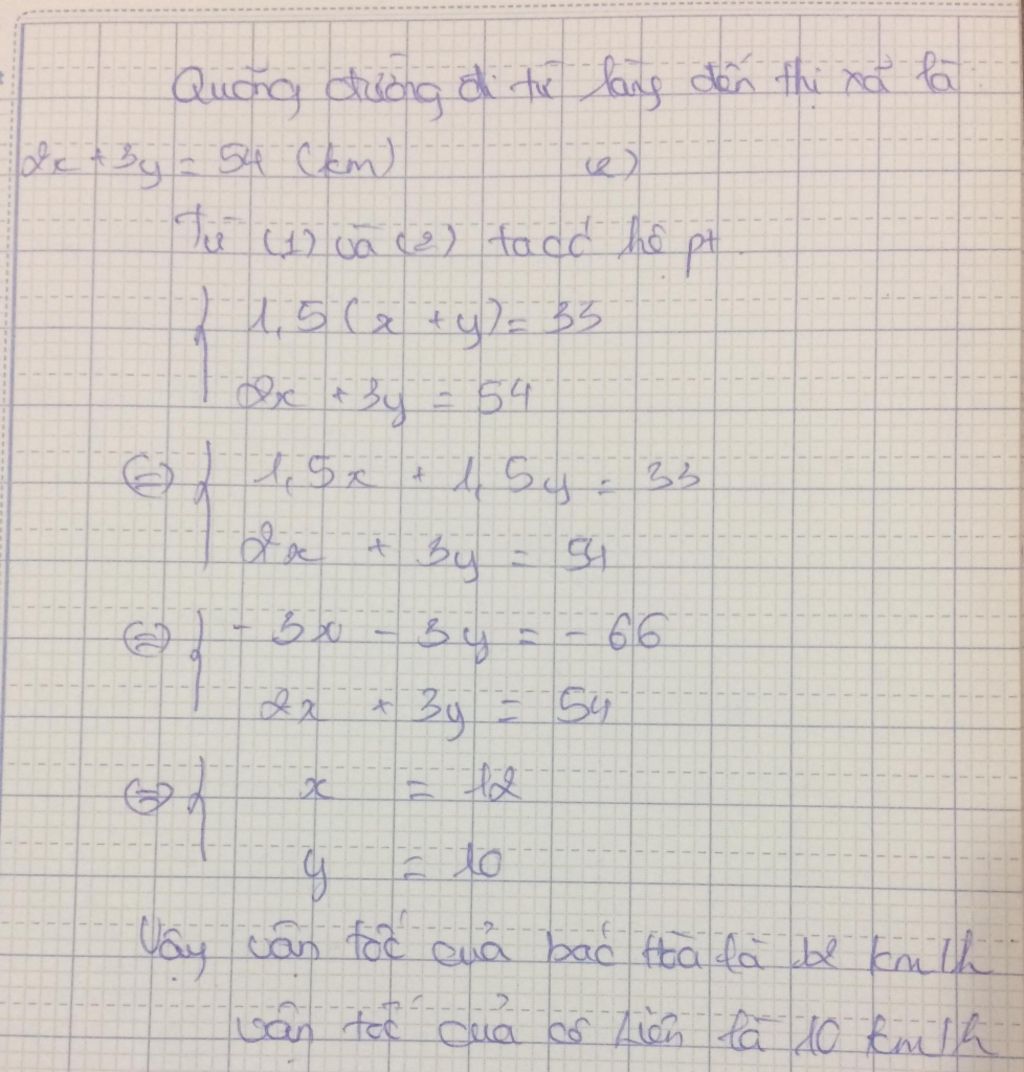 Quãng đường đi từ làng đến thị xã là
2x + 3y = 54 (km) (2)
Từ (1) và (2) ta có hệ pt
{ 1,5(x + y) = 33
2x + 3y = 54
⇔ { 1,5x + 1,5y = 33
2x + 3y = 54
⇔ { - 3x - 3y = - 66
2x + 3y = 54
⇔ { x = 12
y = 10
Vậy vận tốc của bác Hòa là 12 km/h
vận tốc của cô Liên là 10 km/h